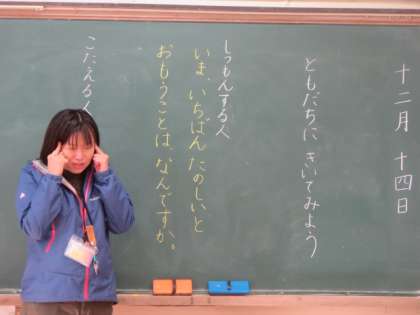 十二月 十四日
ともだちに きいてみよう
しつもんする人
いま、いちばん たのしいと
おもうことは、なんですか。
こたえる人